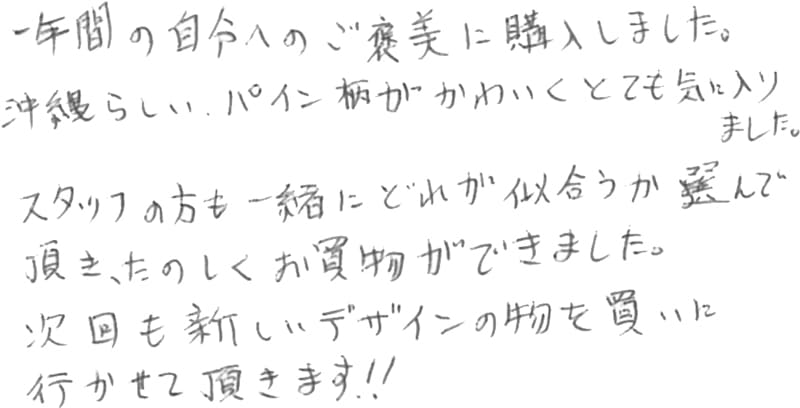 一年間の自分へのご褒美に購入しました。
沖縄らしい、パイン柄がかわいくとても気に入り
ました。
スタッフの方も一緒にどれが似合うか選んで
頂き、たのしくお買物ができました。
次回も新しいデザインの物を買いに
行かせて頂きます!!